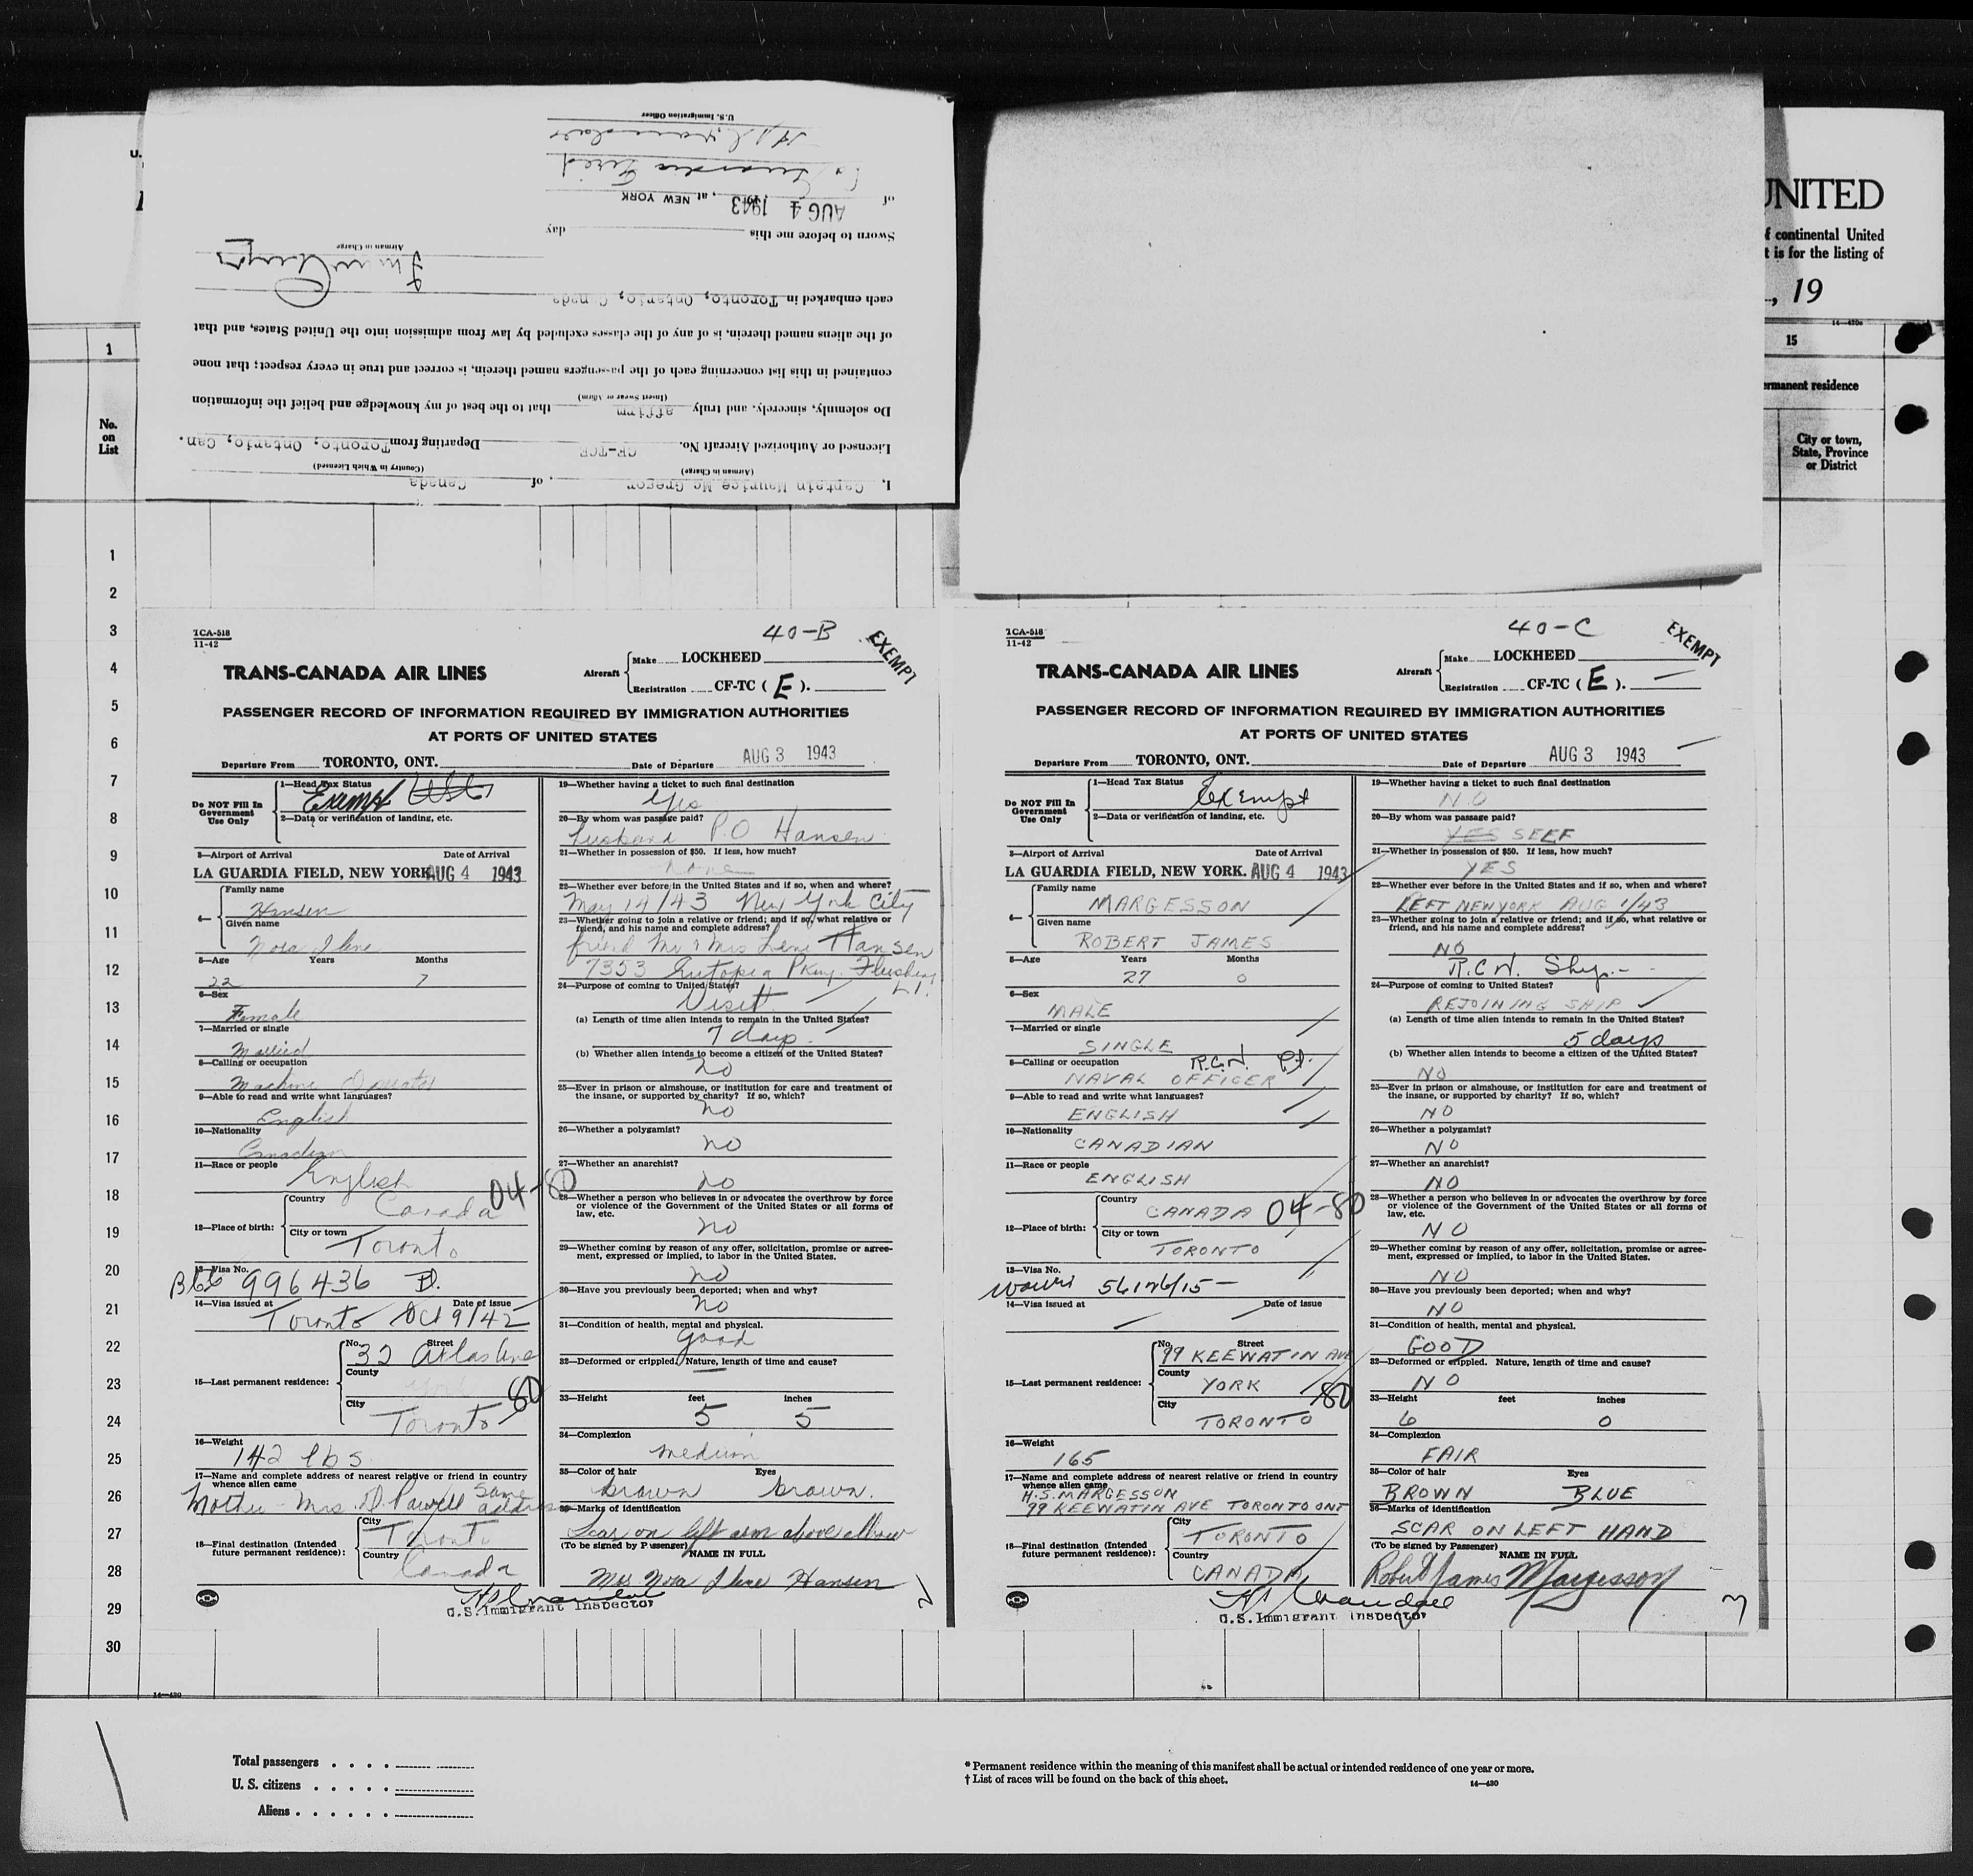 U.S. Immigration Officer
La Guardia Field
of AUG 4 1943, at NEW YORK
Sworn to before me this day
Airman in Charge
each embarked in Toronto, Ontario, Canada
of the aliens named therein, is of any of the classes excluded by law from admission into the United States, and that
contained in this list concerning each of the passengers named therein, is correct and true in every respect; that none
(Insert Swear or Affirm)
Do solemnly, sincerely, and truly affirm that to the best of my knowledge and belief the information
Licensed or Authorized Aircraft No. CF-TCE Departing from Toronto, Ontario, Can.
(Airman in Charge) (Country in Which Licensed)
I, Captain Maurice Mc Gregor, of Canada
UNITED
of continental United
t is for the listing of
, 19
14—430a
1
15
ermanent residence
No.
on
List
City or town,
State, Province
or District
1
2
3
4
5
6
7
8
9
10
11
12
13
14
15
16
17
18
19
20
21
22
23
24
25
26
27
28
29
30
TCA-518
11-42
40-B
EXEMPT
TRANS-CANADA AIR LINES
Aircraft
Make LOCKHEED
Registration CF-TC ( E ).
PASSENGER RECORD OF INFORMATION REQUIRED BY IMMIGRATION AUTHORITIES
AT PORTS OF UNITED STATES
Departure From TORONTO, ONT. Date of Departure AUG 3 1943
Do NOT Fill In
Government
Use Only
1—Head Tax Status
Exempt
2—Data or verification of landing, etc.
3—Airport of Arrival Date of Arrival
LA GUARDIA FIELD, NEW YORK. AUG 4 1943
4—
Family name
Hansen
Given name
Nora Ilene
5—Age Years Months
22 7
6—Sex
Female
7—Married or single
Married
8—Calling or occupation
Machine Operator
9—Able to read and write what languages?
English
10—Nationality
Canadian
11—Race or people
English
04-80
12—Place of birth:
Country
Canada
City or town
Toronto
13—Visa No.
BCC 996436
14—Visa issued at Date of issue
Toronto Oct 9/42
15—Last permanent residence:
No. Street
32 Atlas Ave
County
York
80
City
Toronto
16—Weight
142 lbs
17—Name and complete address of nearest relative or friend in country
whence alien came
Mother - Mrs. D. Powell same address
18—Final destination (Intended
future permanent residence):
City
Toronto
Country
Canada
U.S. Immigrant Inspector
19—Whether having a ticket to such final destination
Yes
20—By whom was passage paid?
husband P.O Hansen
21—Whether in possession of $50. If less, how much?
None
22—Whether ever before in the United States and if so, when and where?
May 14/43 New York City
23—Whether going to join a relative or friend; and if so, what relative or
friend, and his name and complete address?
friend Mr & Mrs Hansen
7353 Eutopia Pkwy. Flushing
L.I.
24—Purpose of coming to United States?
Visit
(a) Length of time alien intends to remain in the United States?
7 days.
(b) Whether alien intends to become a citizen of the United States?
no
25—Ever in prison or almshouse, or institution for care and treatment of
the insane, or supported by charity? If so, which?
no
26—Whether a polygamist?
no
27—Whether an anarchist?
no
28—Whether a person who believes in or advocates the overthrow by force
or violence of the Government of the United States or all forms of
law, etc.
no
29—Whether coming by reason of any offer, solicitation, promise or agree-
ment, expressed or implied, to labor in the United States.
no
30—Have you previously been deported; when and why?
no
31—Condition of health, mental and physical.
good
32—Deformed or crippled. Nature, length of time and cause?
33—Height feet inches
5 5
34—Complexion
medium
35—Color of hair Eyes
brown brown.
36—Marks of identification
Scar on left arm above elbow
(To be signed by Passenger) NAME IN FULL
Mrs Nora Ilene Hansen
2
TCA-518
11-42
40-C
EXEMPT
TRANS-CANADA AIR LINES
Aircraft
Make LOCKHEED
Registration CF-TC ( E ).
PASSENGER RECORD OF INFORMATION REQUIRED BY IMMIGRATION AUTHORITIES
AT PORTS OF UNITED STATES
Departure From TORONTO, ONT. Date of Departure AUG 3 1943
Do NOT Fill In
Government
Use Only
1—Head Tax Status
Exempt
2—Data or verification of landing, etc.
3—Airport of Arrival Date of Arrival
LA GUARDIA FIELD, NEW YORK. AUG 4 1943
4—
Family name
MARGESSON
Given name
ROBERT JAMES
5—Age Years Months
27 0
6—Sex
MALE
7—Married or single
SINGLE
8—Calling or occupation R.C.N.
NAVAL OFFICER
9—Able to read and write what languages?
ENGLISH
10—Nationality
CANADIAN
11—Race or people
ENGLISH
12—Place of birth:
Country
CANADA 04-80
City or town
TORONTO
13—Visa No.
14—Visa issued at Date of issue
15—Last permanent residence:
No. Street
99 KEEWATIN AVE
County
YORK
80
City
TORONTO
16—Weight
165
17—Name and complete address of nearest relative or friend in country
whence alien came
H.S. MARGESSON
99 KEEWATIN AVE TORONTO ONT
18—Final destination (Intended
future permanent residence):
City
TORONTO
Country
CANADA
U.S. Immigrant Inspector
19—Whether having a ticket to such final destination
NO
20—By whom was passage paid?
YES SELF
21—Whether in possession of $50. If less, how much?
YES
22—Whether ever before in the United States and if so, when and where?
LEFT NEW YORK AUG 1/43
23—Whether going to join a relative or friend; and if so, what relative or
friend, and his name and complete address?
NO
R.C.N. Ship.-
24—Purpose of coming to United States?
REJOINING SHIP
(a) Length of time alien intends to remain in the United States?
5 days
(b) Whether alien intends to become a citizen of the United States?
NO
25—Ever in prison or almshouse, or institution for care and treatment of
the insane, or supported by charity? If so, which?
NO
26—Whether a polygamist?
NO
27—Whether an anarchist?
NO
28—Whether a person who believes in or advocates the overthrow by force
or violence of the Government of the United States or all forms of
law, etc.
NO
29—Whether coming by reason of any offer, solicitation, promise or agree-
ment, expressed or implied, to labor in the United States.
NO
30—Have you previously been deported; when and why?
NO
31—Condition of health, mental and physical.
GOOD
32—Deformed or crippled. Nature, length of time and cause?
NO
33—Height feet inches
6 0
34—Complexion
FAIR
35—Color of hair Eyes
BROWN BLUE
36—Marks of identification
SCAR ON LEFT HAND
(To be signed by Passenger) NAME IN FULL
Robert James Margesson
3
14—430
Total passengers
U. S. citizens
Aliens
* Permanent residence within the meaning of this manifest shall be actual or intended residence of one year or more.
† List of races will be found on the back of this sheet.
14—430